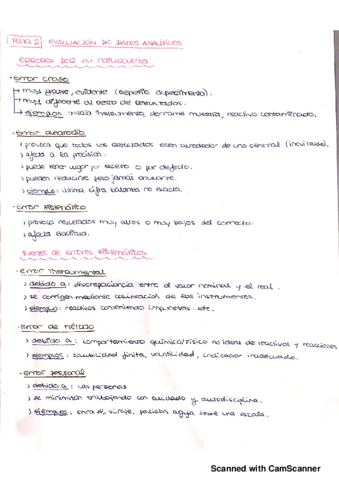 TEMA 2 | EVALUACIÓN DE DATOS ANALÍTICOS
ERRORES POR SU NATURALEZA
· Error craso
→ muy grave, evidente (repetir experimento).
→ muy diferente al resto de resultados.
→ ejemplos: instrumento, derrame muestra, reactivo contaminado.
· Error aleatorio
> provoca que todos los resultados estén alrededor de uno central (inevitable).
> afecta a la precisión.
> puede tener lugar por exceso o por defecto.
> pueden reducirse pero jamás anularse.
> ejemplo: última cifra balanza no exacta.
· Error sistemático
> provoca resultados muy altos o muy bajos del correcto.
> afecta exactitud.
FUENTES DE ERRORES SISTEMÁTICOS
· Error instrumental
> debido a: discrepancia entre el valor nominal y el real.
> se corrigen mediante calibración de los instrumentos.
> ejemplo: reactivos conteniendo impurezas, etc.
· Error de método
> debido a: comportamiento químico/físico no ideal de reactivos y reacciones
> ejemplos: solubilidad finita, volatilidad, indicador inadecuado.
· Error personal
> debido a: las personas
> se minimizan trabajando con cuidado y autodisciplina.
> ejemplos: error de viraje, posición aguja sobre una escala.
Scanned with CamScanner